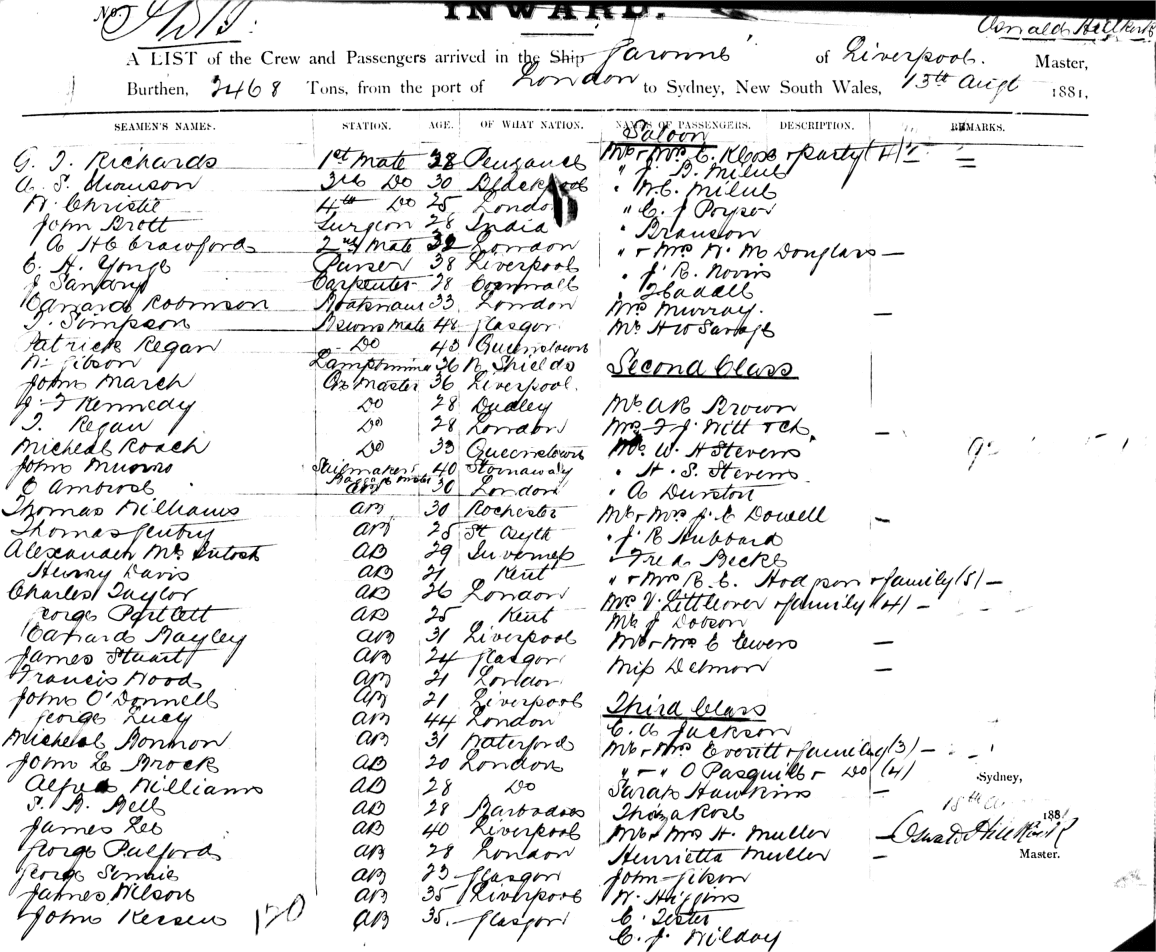 No.
INWARD.
Oswald Hillkirk
A LIST of the Crew and Passengers arrived in the Ship "Garonne" of Liverpool. Master,
Burthen, 2468 Tons, from the port of London to Sydney, New South Wales, 13th Augt 1881,
SEAMEN'S NAMES. STATION. AGE. OF WHAT NATION. NAMES OF PASSENGERS. DESCRIPTION. REMARKS.
Saloon
G. J. Richards 1st Mate 28 Penzance Mr & Mrs C. & party (4)
A. S. Thomson 3rd Do 30 Blackpool " J. B. Milne
W. Christie 4th Do 25 London " W.C. Milne
John Brott Surgeon 28 India " C. J. Poyser
A H C Crawford 2nd Mate 32 London " Branson
C. H. Yonge Purser 38 Liverpool " & Mrs W. M Douglass —
J Sandry Carpenter 28 Cornwall " J. R. Norris
Edward Robinson Boatswain 33 London "
T. Simpson Bosuns Mate 48 Glasgow Mrs Murray. —
Patrick Regan Do 43 Queenstown Mr H W Savage
W. Gibson Lamptrimmer 36 N. Shields
Second Class
John March Qr Master 36 Liverpool.
J. F Kennedy Do 28 Dudley Mr. A R Brown
T. Regan Do 28 London Mrs F J Witt & Ch. —
Micheal Roach Do 33 Queenstown Mr W. H Stevens
John Munro Sailmaker 40 Stornaway " H. S. Stevens
C Ambrose Baggage Master AB 30 London " A Durston
Thomas Williams AB 30 Rochester Mr & Mrs J. C Dowell —
Thomas Gentry AB 25 St Osyth " J R Hubbard
Alexander McIntosh AB 29 Inverness Fred Becke
Henry Davis AB 21 Kent " & Mrs R. C. Hodgson & family (5) —
Charles Taylor AB 26 London Mrs V. Littleover & family (4) —
George Partlett AB 25 Kent Mr J Dobson
Edward Bayley AB 31 Liverpool Mr & Mrs C Ewers —
James Stuart AB 24 Glasgow Miss Delmon —
Francis Woods AB 21 London
John O'Donnell AB 21 Liverpool
Third Class
George Lucy AB 44 London C. A Jackson
Micheal Bonnon AB 31 Waterford Mr & Mrs Everitt & family (3) —
John Le Brock AB 20 London " & " O Pasquile & Do (4)
Alfred Williams AB 28 Do Sarah Hawkins —
S. B. Bell AB 28 Barbadoes Rose
James Lee AB 40 Liverpool Mr & Mrs H. Muller —
George Pulford AB 28 London Henrietta Muller —
George AB 23 Glasgow John Gibson
James Wilson AB 35 Liverpool W. Higgins
John Kessen AB 35. Glasgow C. Tester
120
C. J. Wilday
Sydney,
15th 188
Oswald Hillkirk
Master.